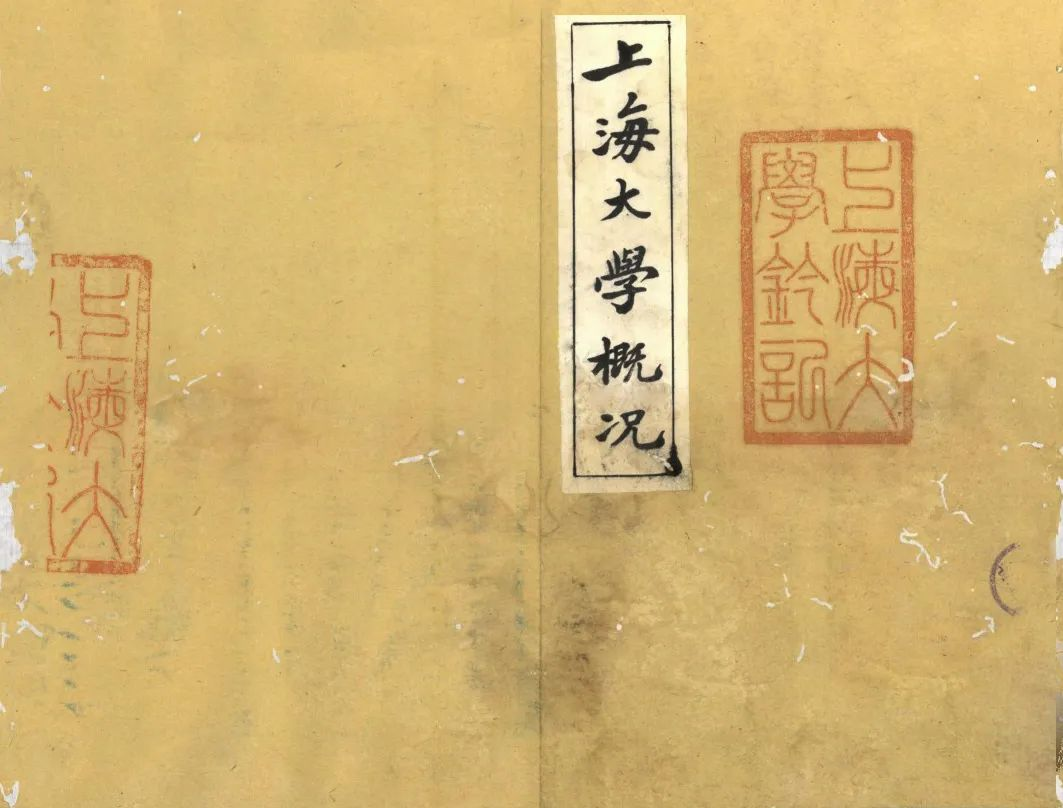 上海大學概況
上海大
學鈐記
上海大